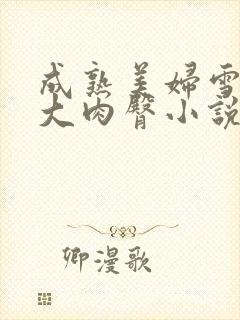 成熟美婦雪
大肉臀小説
卿漫歌